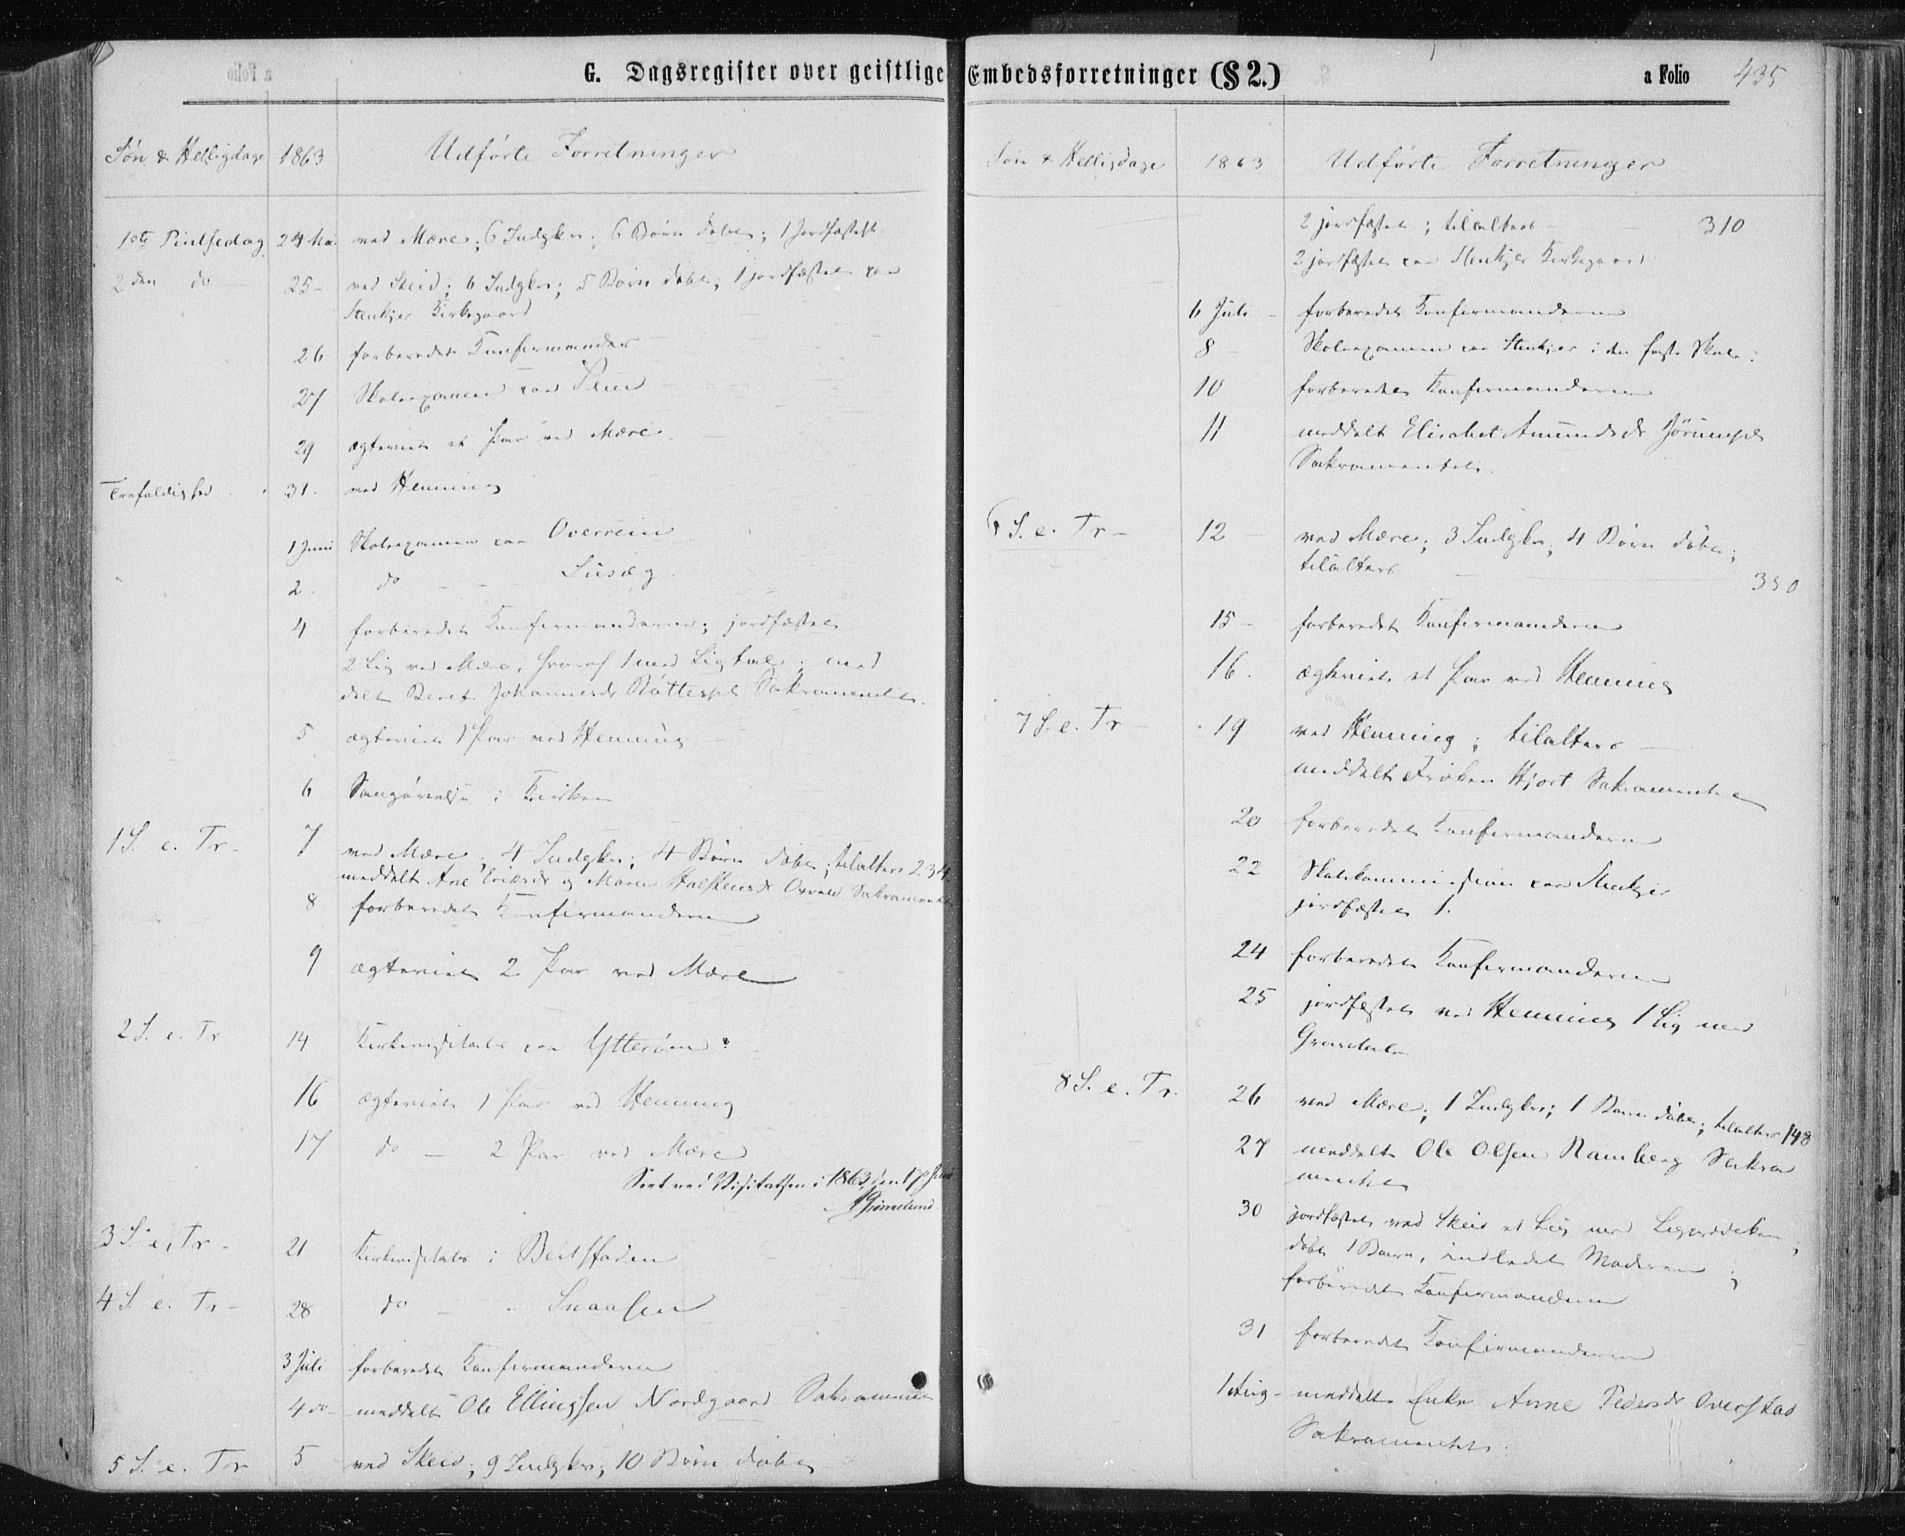 G. Dagsregister over geistlige Embedsforretninger (§ 2.)
a Folio 435
Søn & Helligdage 1863 Udførte Forretninger
1ste Pintsedag 24 Mai ved Mære; 6 Indgkr; 6 Børn døbte; 1 Jordfæstelse
2den do 25 - ved Skeid; 6 Indgkr; 5 Børn døbte; 1 jordfæstet paa
Stenkjer Kirkegaard
26 forberedet Konfirmander
27 Skoleexamen paa
29 ægteviet et Par ved Mære
Trefoldighed 31. ved Henning
1 Juni Skoleexamen paa Overrein
2. do - - Susæg
4 forberedet Konfirmanderne; jordfæstet
2 Lig ved Mære, hvoraf 1 med Ligtale; med
delt Beret Johannesdr Sakramentet.
5 ægteviet 1 Par ved Henning
6 Sangøvelse i Kirken
1 S. e. Tr - 7 ved Mære; 4 Indgkr; 4 Børn døbte; tilalters 234
meddelt Ane Eriksdr og Maren Halstensdr Sakramentet
8 forberedet Konfirmanderne
9 ægteviet 2 Par ved Mære
2 S. e. Tr 14 Kirkevisitats paa Ytterøen
16 ægteviet 1 Par ved Henning
17 do - 2 Par ved Mære
Seet ved Visitatsen i 1863 den 17 Juni
3 S. e. Tr - 21 Kirkevisitats i Beitstaden
4 S. e. Tr - 28 do - " Snaasen
3 Juli forberedet Konfirmanderne
4 do - meddelt Ole Ellingsen Nordgaard Sakramentet
5 S. e. Tr 5 ved Skeid; 9 Indgkr; 10 Børn døbte
Søn & Helligdage 1863 Udførte Forretninger
2 jordfæstet; tilalters - 310
2 jordfæstet paa Stenkjer Kirkegaard
6 Juli - forberedet Konfirmanderne
8 - Skoleexamen paa Stenkjer i den faste Skole
10 forberedet Konfirmanderne
11 meddelt Elisabet Amundsdr
Sakramentet.
6 S. e. Tr - 12 - ved Mære; 3 Indgkr; 4 Børn døbte;
tilalters - 350
15 - forberedet Konfirmanderne
16. ægteviet et Par ved Henning
7 S. e. Tr - 19 ved Henning; tilalters
meddelt Frøken Hjort Sakramentet
20 forberedet Konfirmanderne
22 Skolekommission paa Stenkjer
jordfæstet 1.
24 forberedet Konfirmanderne
25 jordfæstet ved Henning 1 Lig med
Gravtale
8 S. e. Tr. 26 ved Mære; 1 Indgkr; 1 Barn døbt; tilalters 148
27 meddelt Ole Olsen Ramberg Sakra
mentet
30 jordfæstet ved Skeid et Lig med
døbt 1 Barn, indledet Moderen;
forberedet Konfirmanderne
31 forberedet Konfirmanderne
1 Aug - meddelt Enke Anne Pedersdr Overstad
Sakramentet.